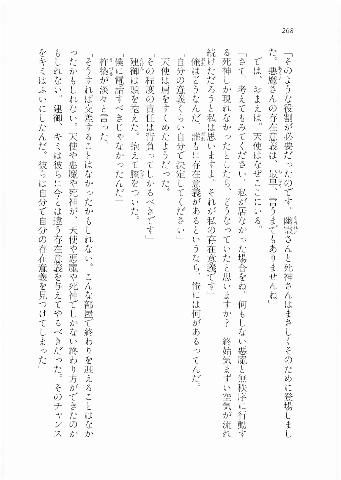 268
「そのような役割が必要だったのです。幽霊さんと死神さんはまさしくそのために登場しまし
た。悪魔さんの存在意義は、最早、言うまでもありませんね」
では、おまえは。天使はなぜここにいる。
「さて、考えてもみてください。私が居なかった場合をね。何もしない悪魔と無秩序に行動す
る死神しか現れなかったとしたら、どうなっていたと思いますか？　終始気まずい空気が流れ
続けただろうと私は思いますよ。それが私の存在意義です」
俺はどうなんだ。誰もに存在意義があるというなら、俺には何があるってんだ。
「自分の意義くらい自分で決定してください」
天使は肩をすくめたようだった。
「その程度の責任は背負ってしかるべきです」
建御は頭を抱えた。抱えて膝をついた。
「僕に電話すべきじゃなかったんだ」
作楽が淡々と言った。
「そうすれば交差することはなかったかもしれない。こんな部屋で終わりを迎えることはなか
ったかもしれない。天使や悪魔や死神が、天使や悪魔や死神でしかない終わり方ができたのか
もしれない。建御、キミは彼らに今とは違う存在意義を与えてやるべきだった。そのチャンス
をキミはふいにしたんだ。彼らは自分で自分の存在意義を見つけてしまった」